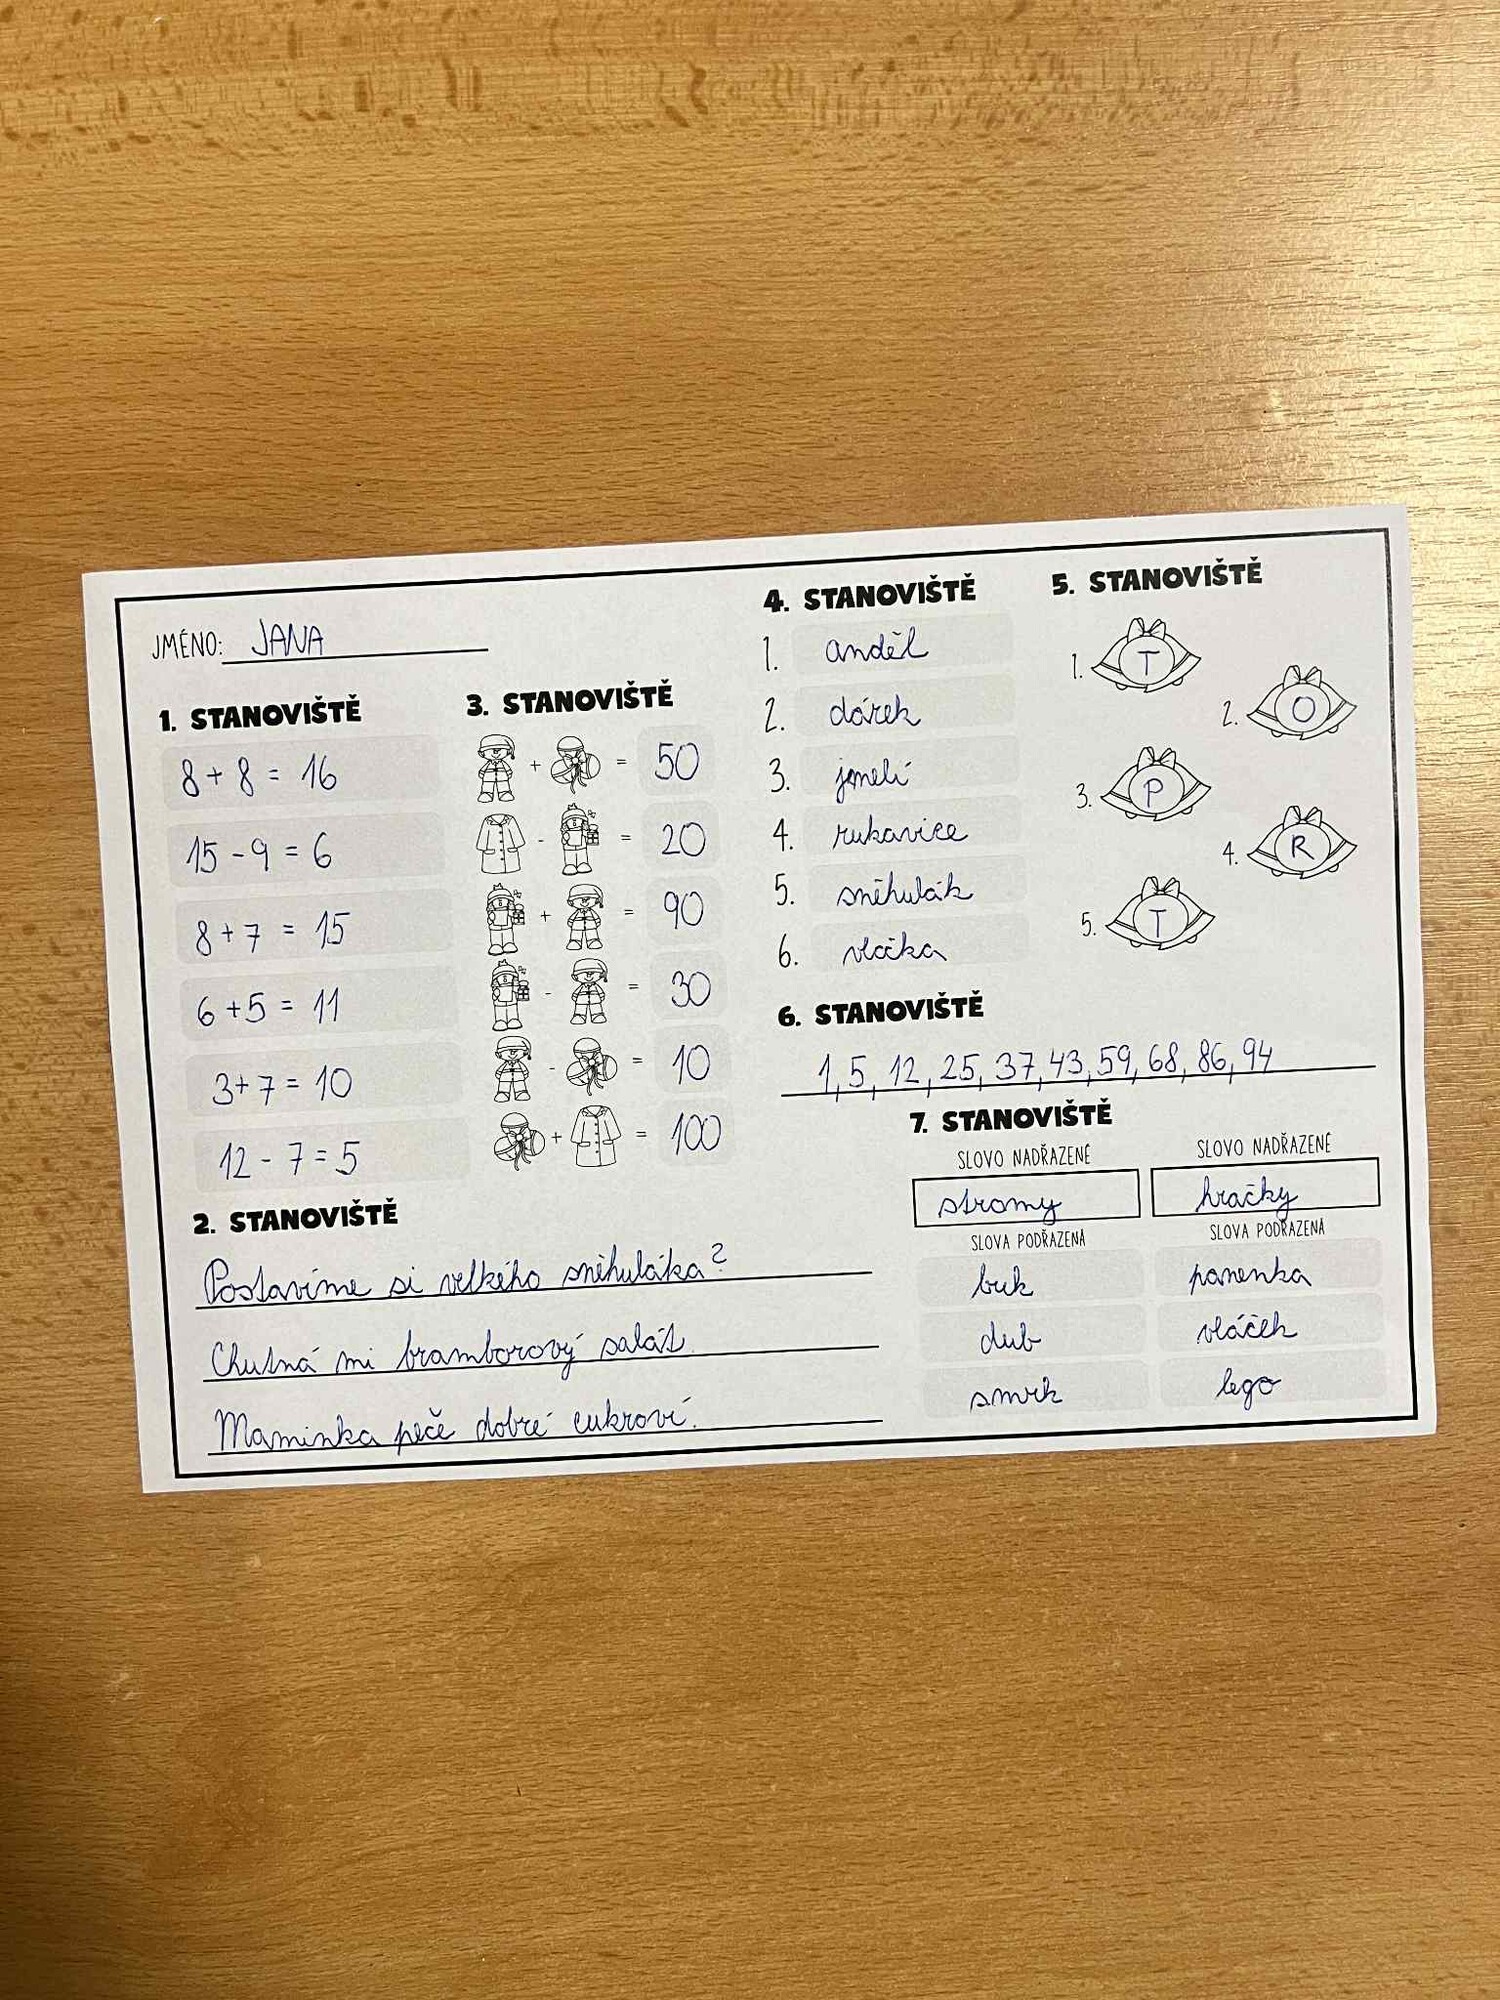 JMÉNO: JANA
1. STANOVIŠTĚ
8 + 8 = 16
15 - 9 = 6
8 + 7 = 15
6 + 5 = 11
3 + 7 = 10
12 - 7 = 5
2. STANOVIŠTĚ
Postavíme si velkého sněhuláka?
Chutná mi bramborový salát.
Maminka peče dobré cukroví.
3. STANOVIŠTĚ
+ = 50
- = 20
+ = 90
- = 30
- = 10
+ = 100
4. STANOVIŠTĚ
1. anděl
2. dárek
3. jmelí
4. rukavice
5. sněhulák
6. vločka
5. STANOVIŠTĚ
1. T
2. O
3. P
4. R
5. T
6. STANOVIŠTĚ
1, 5, 12, 25, 37, 43, 59, 68, 86, 94
7. STANOVIŠTĚ
SLOVO NADŘAZENÉ
stromy
SLOVA PODŘAZENÁ
buk
dub
smrk
SLOVO NADŘAZENÉ
hračky
SLOVA PODŘAZENÁ
panenka
vláček
lego